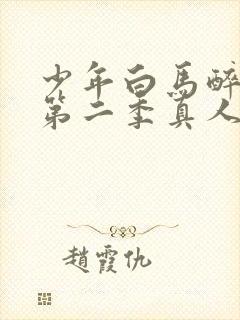 少年白馬醉
第二季真人
趙霞仇